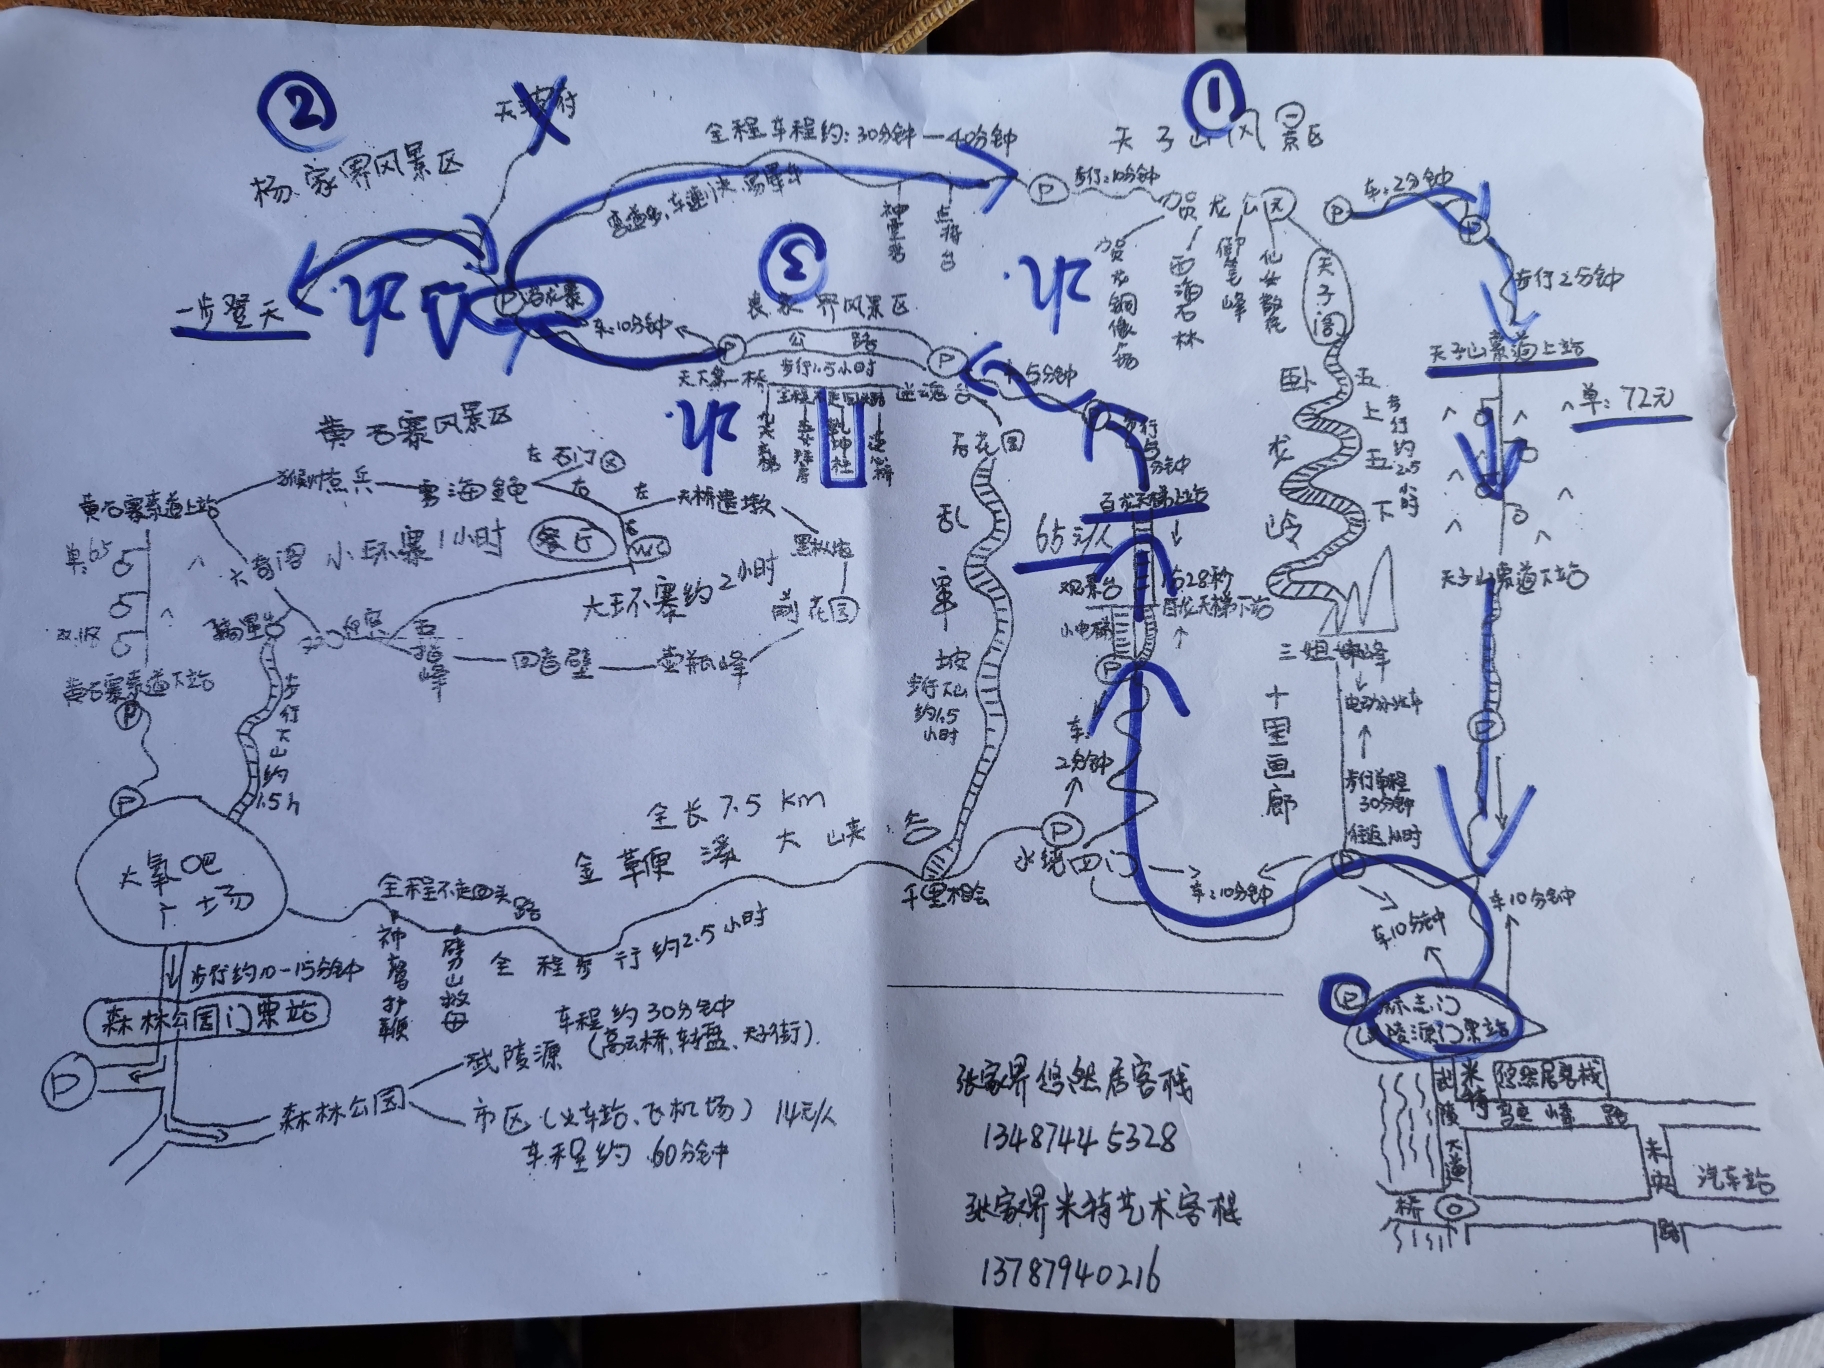 ②
①
天子山风景区
全程车程约:30分钟—40分钟
杨家界风景区
弯道多,车速快,易晕车
步行:10分钟
车:2分钟
贺龙公园
神堂湾
点将台
③
贺龙铜像广场
西海石林
御笔峰
仙女散花
天子阁
步行2分钟
一步登天
吃
吃
车:10分钟
袁家界风景区
公路
步行1.5小时
天下第一桥
迷魂台
车:5分钟
天子山索道上站
单:72元
吃
乾坤柱
后花园
步行5分钟
百龙天梯上站
65元/人
观景台
1分28秒
百龙天梯下站
小电梯
卧龙岭
上
下
步行约2.5小时
天子山索道下站
黄石寨风景区
左 石门
右
黄石寨索道上站
猴帅点兵
雾海金龟
左
天桥遗墩
单:65
六奇阁
小环寨1小时
餐厅
右
WC
黑枞垴
大环寨约2小时
前花园
摘星台
五指峰
回音壁
壶瓶峰
黄石寨索道下站
步行下山约1.5h
乱窜坡
步行下山约1.5小时
三姐妹峰
电动小火车
十里画廊
步行单程30分钟
往返1小时
车:2分钟
P
大氧吧广场
全长7.5km
金鞭溪大峡谷
千里相会
水绕四门
车:10分钟
车10分钟
车10分钟
全程不走回头路
神鹰护鞭
劈山救母
全程步行约2.5小时
步行约10-15分钟
森林公园门票站
标志门
(武陵源门票站)
车程约30分钟
武陵源(高云桥、转盘、天子街)
森林公园
市区(火车站、飞机场) 14元/人
车程约60分钟
张家界悠然居客栈
13487445328
张家界米特艺术客栈
13787940216
武陵大道
米特
悠然居客栈
高云峰路
未央路
汽车站
桥